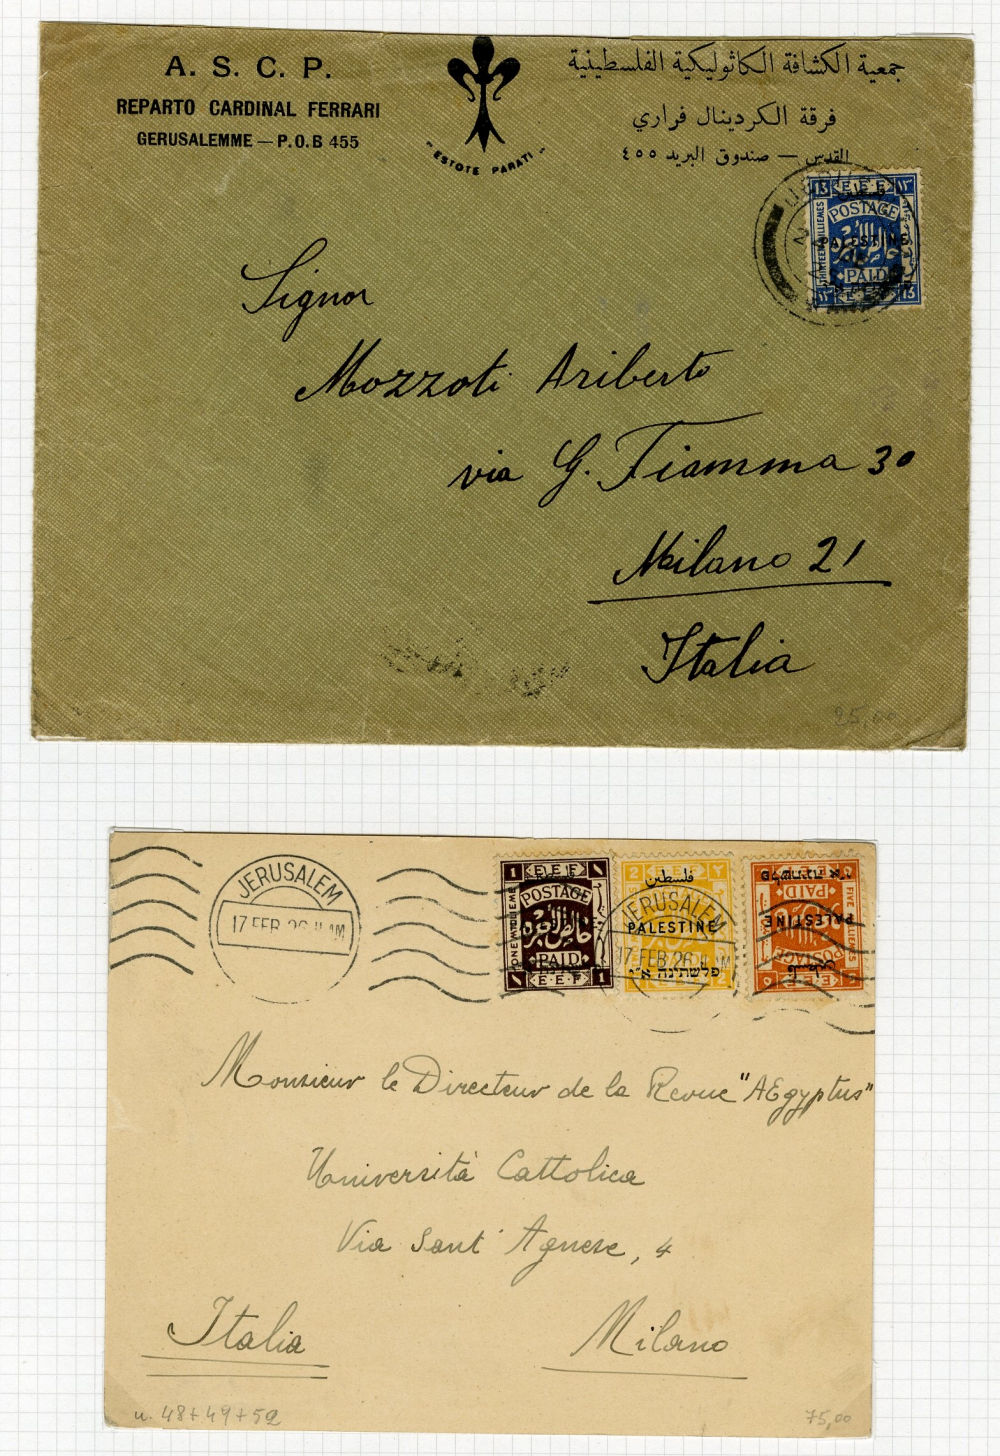 A. S. C. P.
REPARTO CARDINAL FERRARI
GERUSALEMME — P.O.B 455
"ESTOTE PARATI"
جمعية الكشافة الكاثوليكية الفلسطينية
فرقة الكردينال فراري
القدس — صندوق البريد ٤٥٥
13 E·E·F ١٣
POSTAGE
PALESTINE
PAID
13
Signor
Mozzoti Ariberto
via G. Fiamma 30
Milano 21
Italia
25,00
JERUSALEM
17 FEB 26 11 AM
1 E·E·F ١
POSTAGE
ONE MILLIEME
خالص الاجرة
PAID
١ E·E·F 1
2 E·E·F ٢
فلسطين
PALESTINE
פלשתינה א״י
JERUSALEM
17 FEB 26 AM
PAID
PALESTINE
POSTAGE
فلسطين
פלשתינה א״י
Monsieur le Directeur de la Revue "AEgyptus"
Università Cattolica
Via Sant' Agnese, 4
Italia Milano
n. 48+49+52
75,00